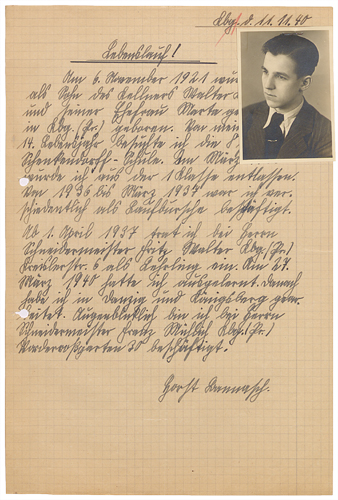 Kbg. d. 11.11.40
Lebenslauf!
Am 6. November 1921 wu
als Sohn des Kellners Walter
und seiner Ehefrau Marta ge
in Kbg. (Pr.) geboren. Von mein
14. Lebensjahr besuchte ich die
Schenkendorf-Schule. Im März
wurde ich aus der 1 Klasse entlassen.
Von 1936 bis März 1937 war ich ver.
schiedentlich als Laufbursche beschäftigt.
Ab 1. April 1937 trat ich bei Herrn
Schneidermeister Fritz Walter Kbg. (Pr.)
6 als Lehrling ein. Am 27.
März 1940 hatte ich ausgelernt. Danach
habe ich in Danzig und Königsberg gear.
beitet. Augenblicklich bin ich bei Herrn
Schneidermeister Kbg. (Pr.)
Vorderroßgarten 30 beschäftigt.
Horst